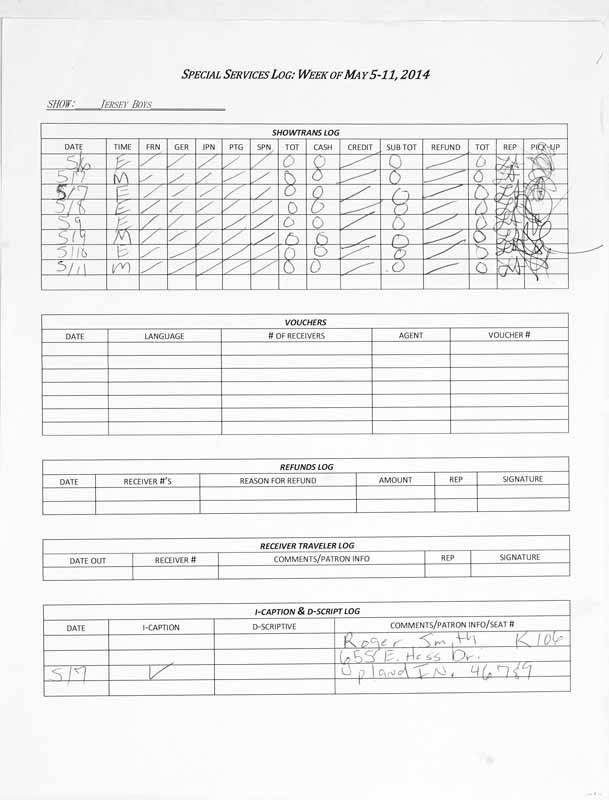 SPECIAL SERVICES LOG: WEEK OF MAY 5-11, 2014
SHOW: JERSEY BOYS
SHOWTRANS LOG
DATE TIME FRN GER JPN PTG SPN TOT CASH CREDIT SUB TOT REFUND TOT REP PICK-UP
5/6 E / / / / / 0 0 / 0 / 0
5/7 M / / / / / 0 0 / 0 / 0
5/7 E / / / / / 0 0 / 0 / 0
5/8 E / / / / / 0 0 / 0 / 0
5/9 E / / / / / 0 0 / 0 / 0
5/9 M / / / / / 0 0 / 0 / 0
5/10 E / / / / / 0 0 / 0 / 0
5/11 M / / / / / 0 0 / 0 / 0
VOUCHERS
DATE LANGUAGE # OF RECEIVERS AGENT VOUCHER #
REFUNDS LOG
DATE RECEIVER #'S REASON FOR REFUND AMOUNT REP SIGNATURE
RECEIVER TRAVELER LOG
DATE OUT RECEIVER # COMMENTS/PATRON INFO REP SIGNATURE
I-CAPTION & D-SCRIPT LOG
DATE I-CAPTION D-SCRIPTIVE COMMENTS/PATRON INFO/SEAT #
Roger Smith K106
655 E. Hess Dr.
5/7 ✓ Upland IN. 46789